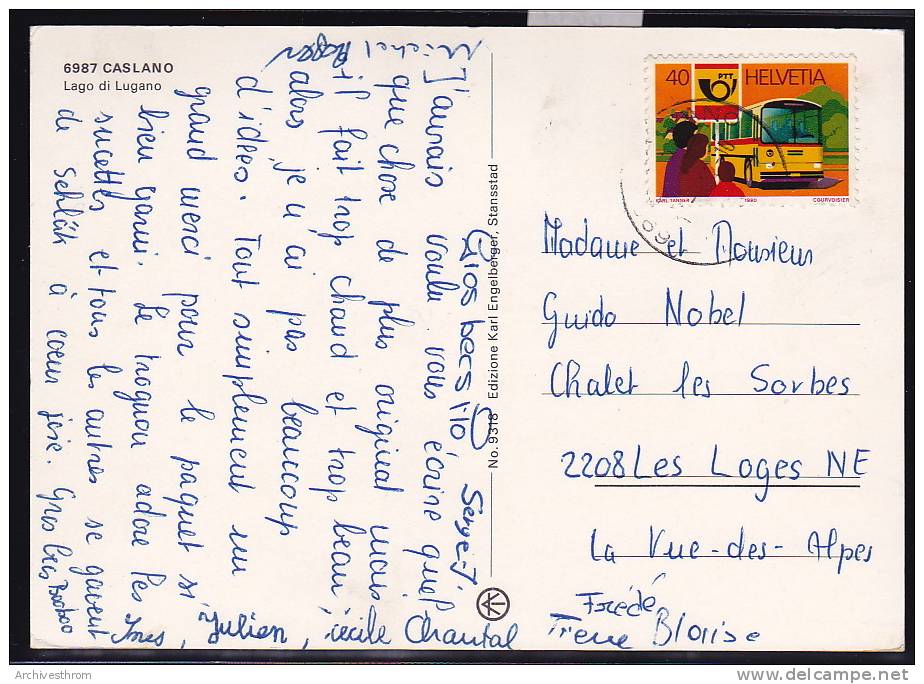 6987 CASLANO
Lago di Lugano
Michel Roger
J'aurais voulu vous écrire quel-
que chose de plus original mais
il fait trop chaud et trop beau,
alors je n'ai pas beaucoup
d'idées. Tout simplement un
grand merci pour le paquet si
bien garni. Le trognon adore les
sucettes et tous les autres se gavent
de Schläck à coeur joie. Gros becs
Gros becs
Serge-J
Ines, Julien, Cécile Chantal
No. 9318 Edizione Karl Engelberger, Stansstad
40 PTT HELVETIA
KARL TANNER 1980 COURVOISIER
Madame et Monsieur
Guido Nobel
Chalet les Sorbes
2208 Les Loges NE
La Vue-des-Alpes
Frédé
Archivesthrom
delcampe.net